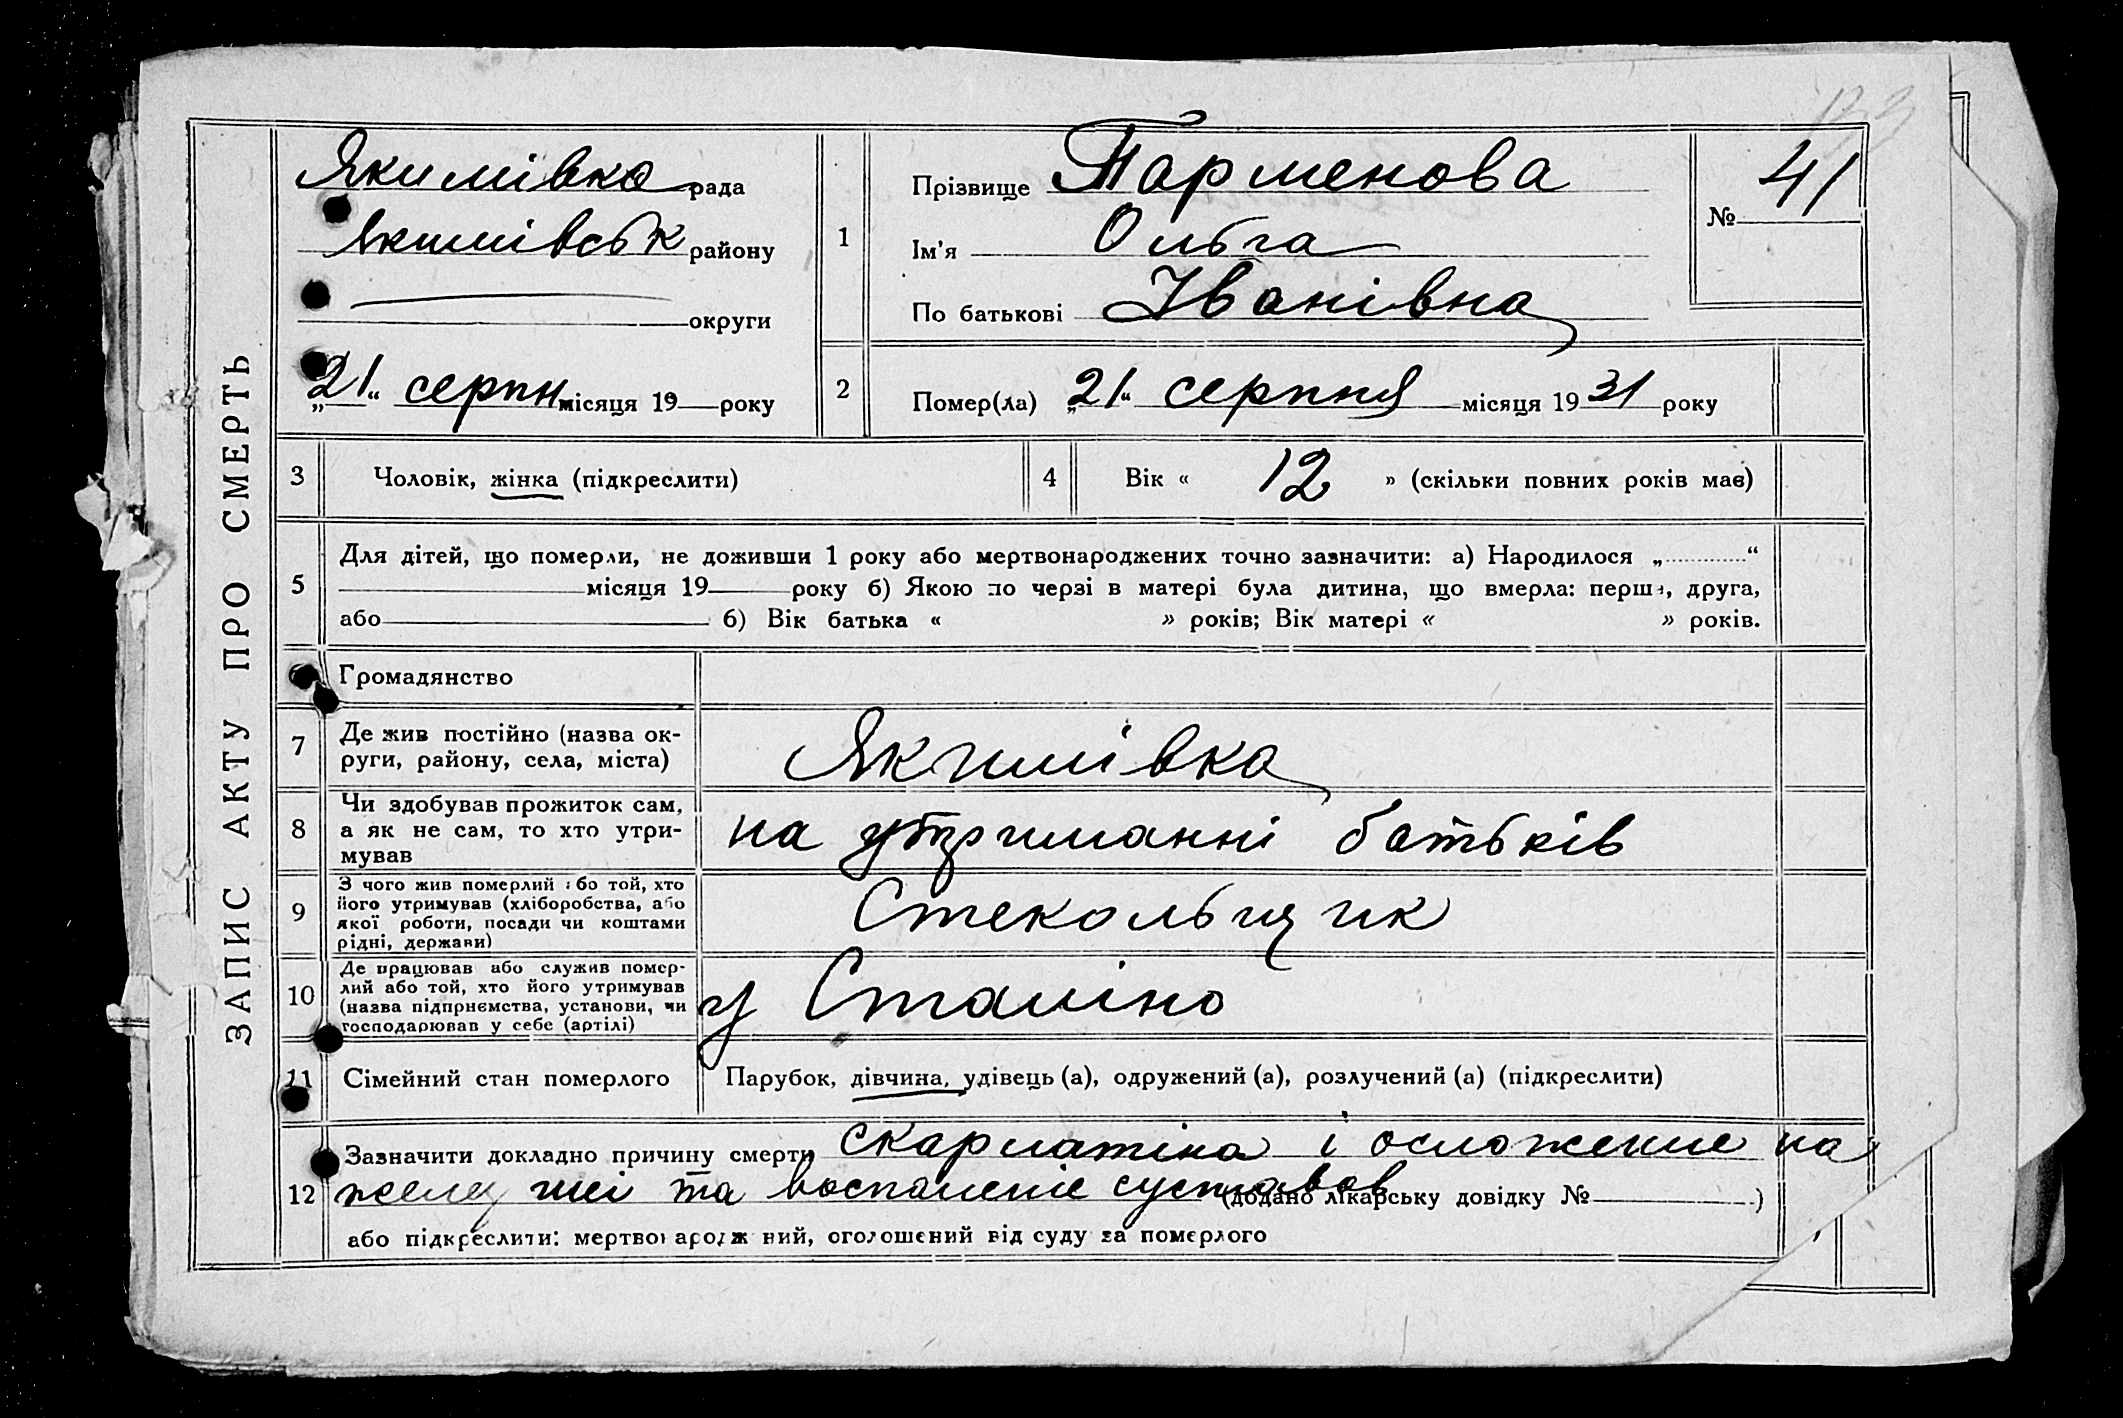 133
Якимівка рада
Якимівськ району
округи
„21“ серпн місяця 19 року
1
Прізвище Парменова
Ім'я Ольга
По батькові Іванівна
№ 41
2
Помер(ла) „21“ серпня місяця 1931 року
ЗАПИС АКТУ ПРО СМЕРТЬ
3 Чоловік, жінка (підкреслити)
4 Вік « 12 » (скільки повних років має)
5
Для дітей, що померли, не доживши 1 року або мертвонароджених точно зазначити: а) Народилося „ “
місяця 19 року б) Якою по черзі в матері була дитина, що вмерла: перша, друга,
або б) Вік батька « » років; Вік матері « » років.
Громадянство
7
Де жив постійно (назва ок-
руги, району, села, міста)
Якимівка
8
Чи здобував прожиток сам,
а як не сам, то хто утри-
мував
на утриманні батьків
9
З чого жив померлий або той, хто
його утримував (хліборобства, або
якої роботи, посади чи коштами
рідні, держави)
Стекольщик
10
Де працював або служив помер-
лий або той, хто його утримував
(назва підприємства, установи, чи
господарював у себе (артілі)
у Сталіно
11 Сімейний стан померлого
Парубок, дівчина, удівець (а), одружений (а), розлучений (а) (підкреслити)
12
Зазначити докладно причину смерти скарлатіна і осложение на
желез шеі та воспаление суставов (додано лікарську довідку № )
або підкреслити: мертвонароджений, оголошений від суду за померлого